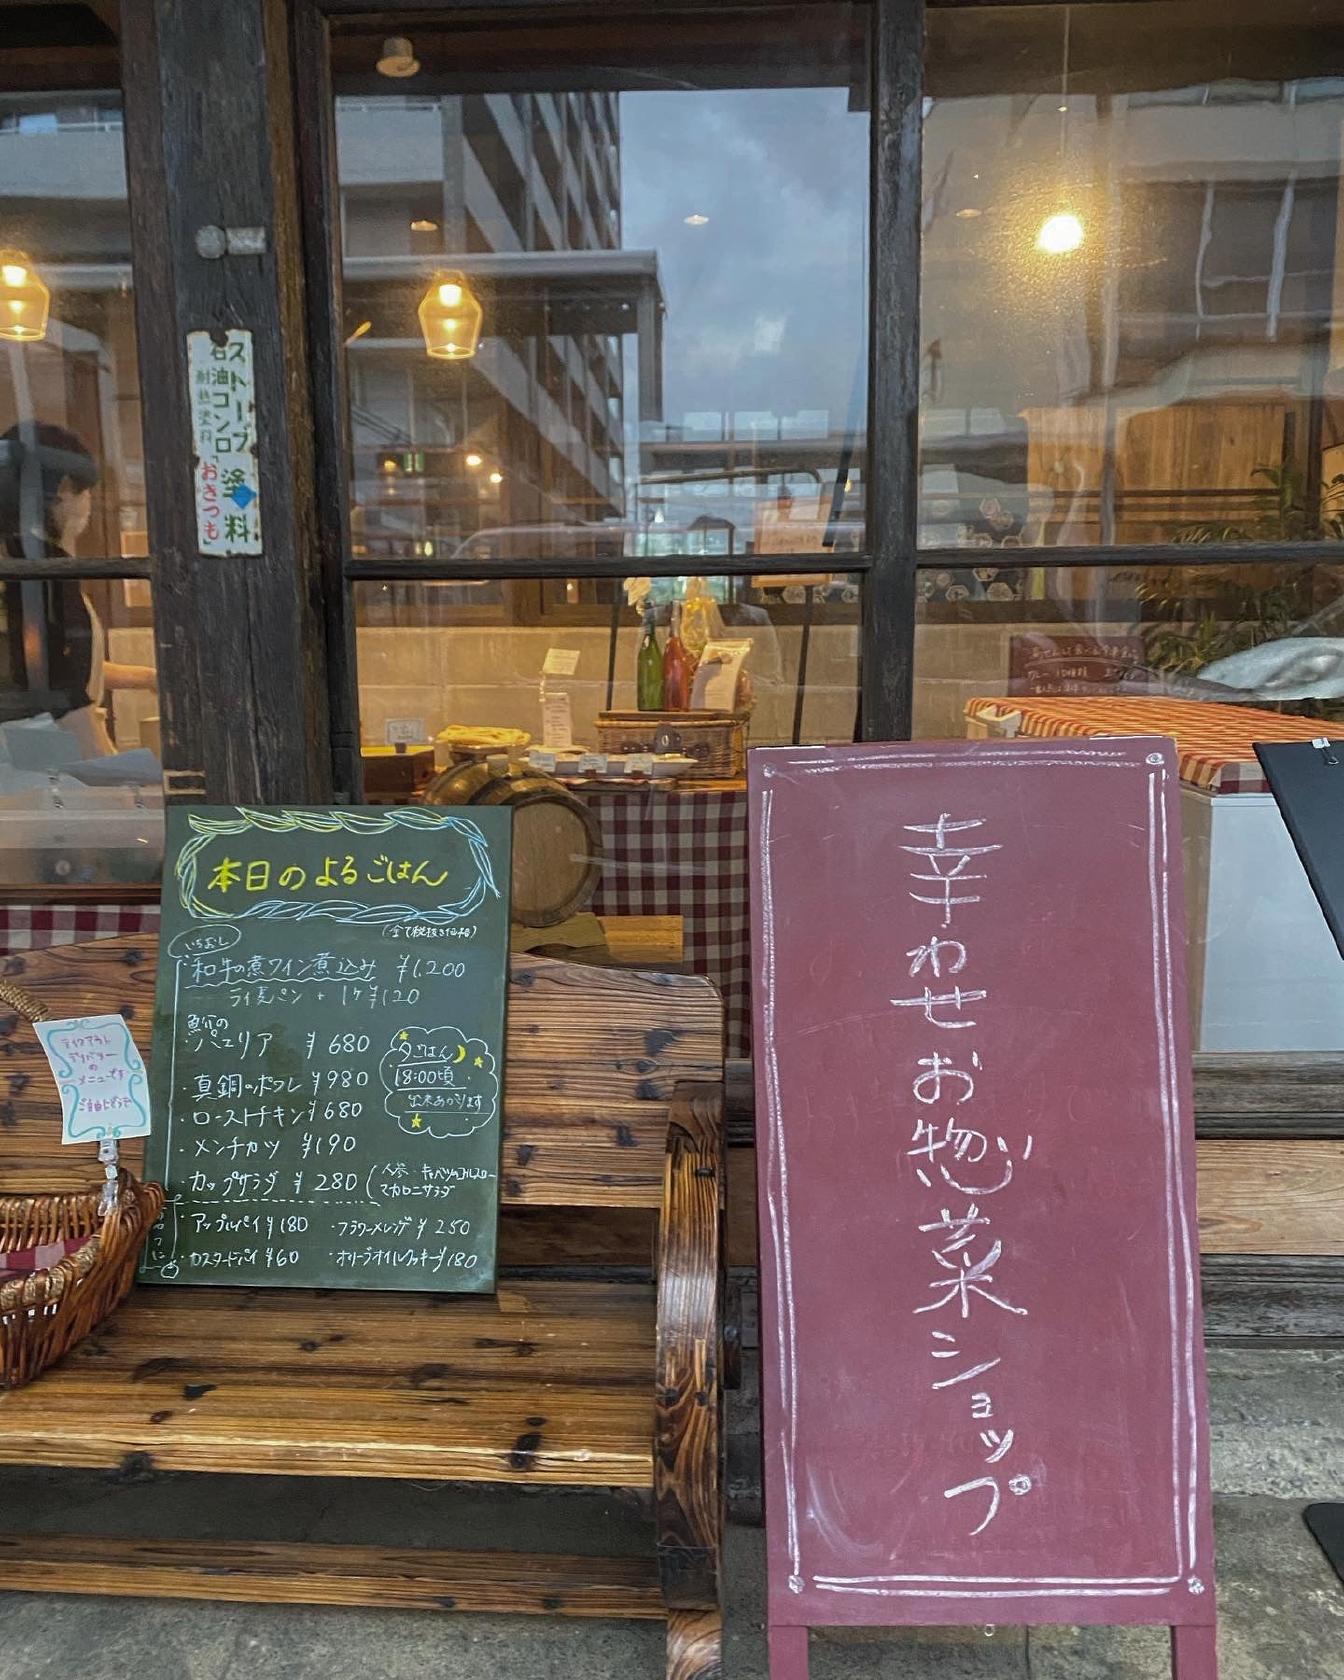 ストーブ塗料
石油コンロ
耐熱塗料
おさつも
本日のよるごはん
(全て税抜き価格)
いちおし
和牛の煮ワイン煮込み ¥1,200
ライ麦パン + 1ケ¥120
魚介の
・パエリア ¥680
・真鯛のポワレ ¥980
・ローストチキン ¥680
・メンチカツ ¥190
・カップサラダ ¥280
人参・キャベツのコールスロー
マカロニサラダ
夕ごはん
18:00頃
出来あがります
おやつに
・アップルパイ ¥180 ・フラワーメレンゲ ¥250
・カスタードパイ ¥60 ・オリーブオイルクッキー ¥180
テイクアウト
デリバリー
の
メニューです
ご自由にどうぞ
幸わせお惣菜ショップ